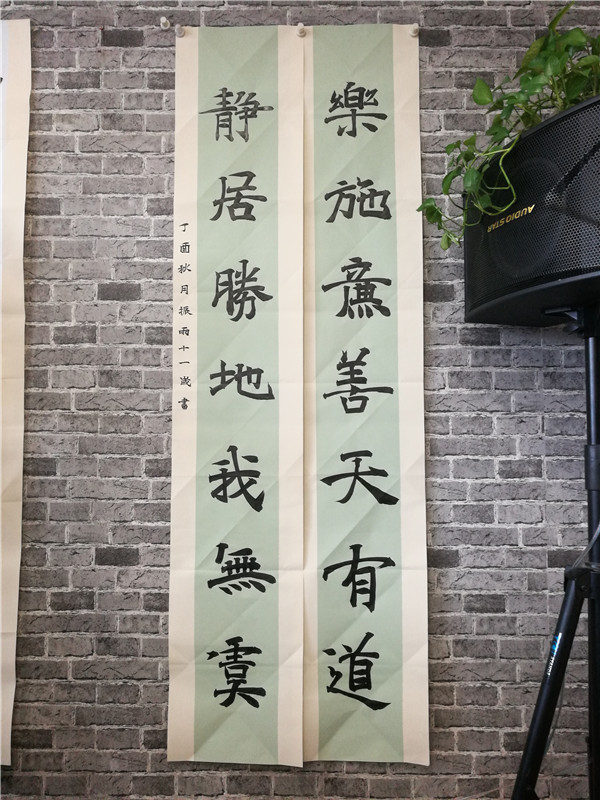 樂施兼善天有道
静居勝地我無虞
丁酉秋月振雨十一歲書
AUDIO STAR